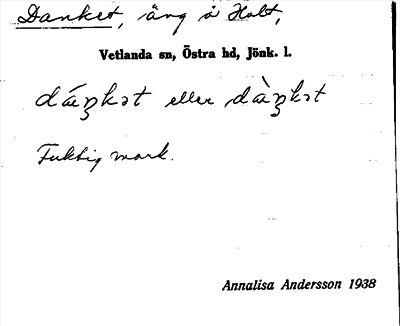 Danket, äng å Holt,
Vetlanda sn, Östra hd, Jönk. l.
dáŋkət eller dàŋkət
Fuktig mark.
Annalisa Andersson 1938